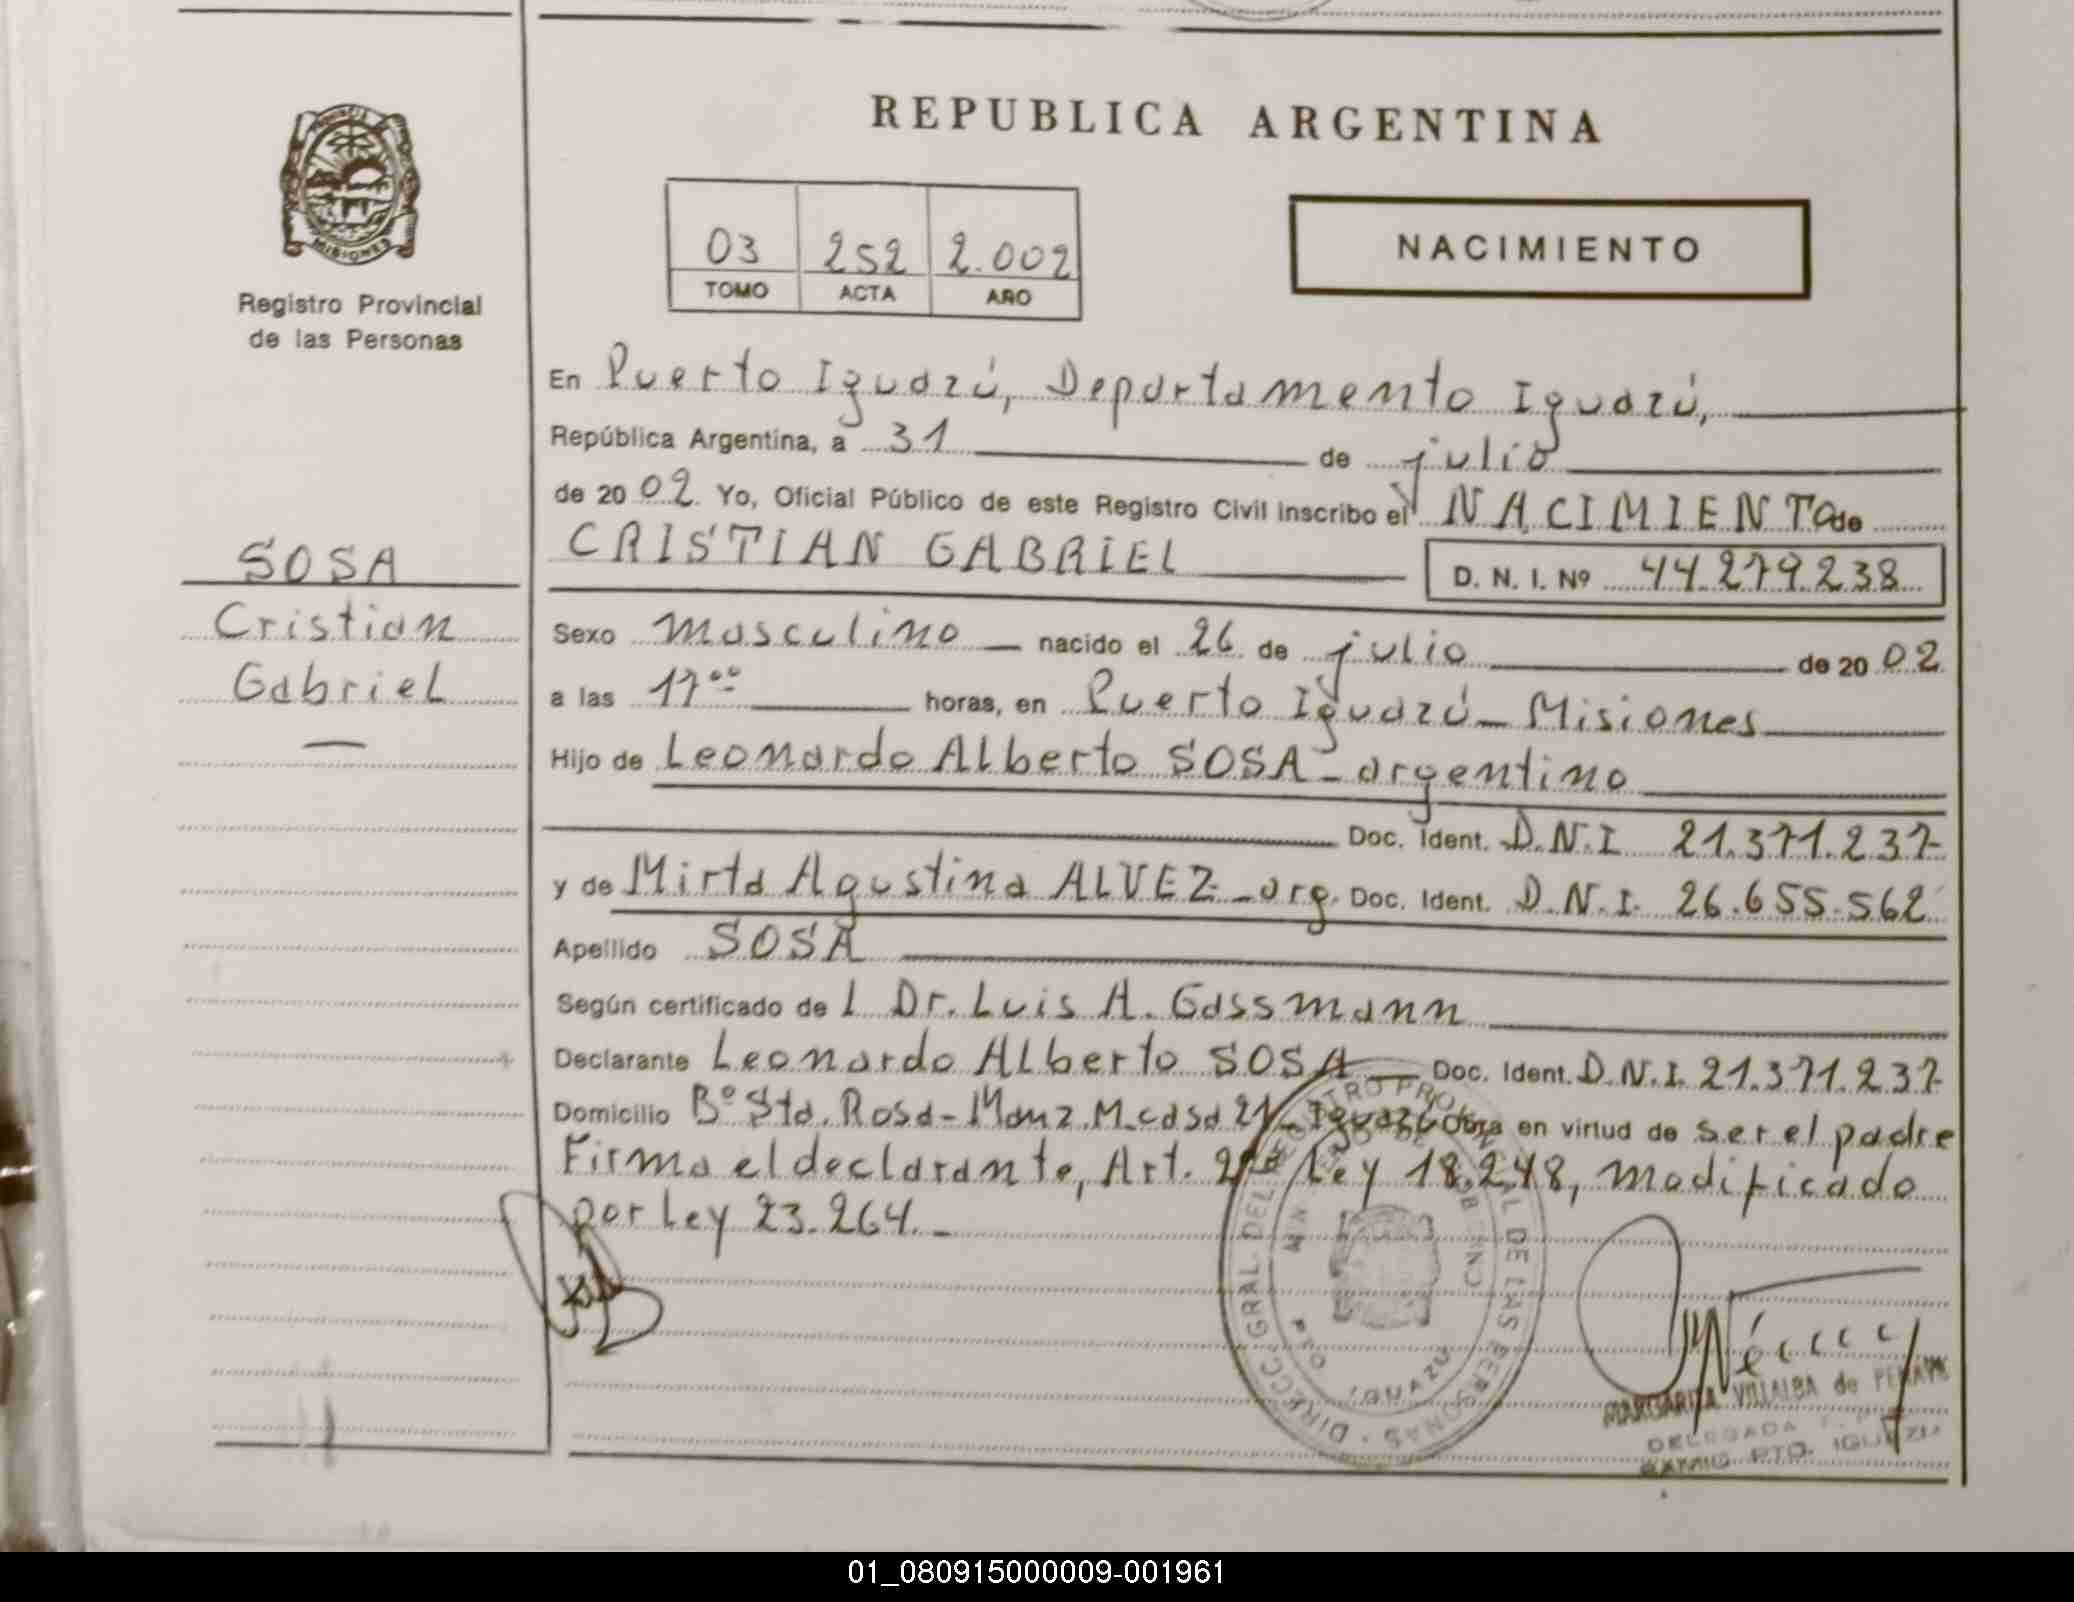 REPUBLICA ARGENTINA
MISIONES
Registro Provincial
de las Personas
03 252 2.002
TOMO ACTA AÑO
NACIMIENTO
En Puerto Iguazú, Departamento Iguazú,
República Argentina, a 31 de julio
de 2002 Yo, Oficial Público de este Registro Civil inscribo el NACIMIENTO de
SOSA
Cristian
Gabriel
CRISTIAN GABRIEL D. N. I. Nº 44.279.238
Sexo masculino nacido el 26 de julio de 2002
a las 17ºº horas, en Puerto Iguazú - Misiones
Hijo de Leonardo Alberto SOSA - argentino
Doc. Ident. D.N.I. 21.371.237-
y de Mirta Agustina ALVEZ - arg. Doc. Ident. D.N.I. 26.655.562
Apellido SOSA
Según certificado de l Dr. Luis A. Gassmann
Declarante Leonardo Alberto SOSA Doc. Ident. D.N.I. 21.371.237-
Domicilio Bº Sta. Rosa - Manz. M. casa 21 - Iguazú Obra en virtud de ser el padre
Firma el declarante, Art. Ley 18.248, modificado
por Ley 23.264.-
DIRECC. GRAL. DEL REGISTRO PROVINCIAL DE LAS PERSONAS
IGUAZU
MARGARITA VILLALBA de
DELEGADA
PTO. IGUAZU
01_080915000009-001961